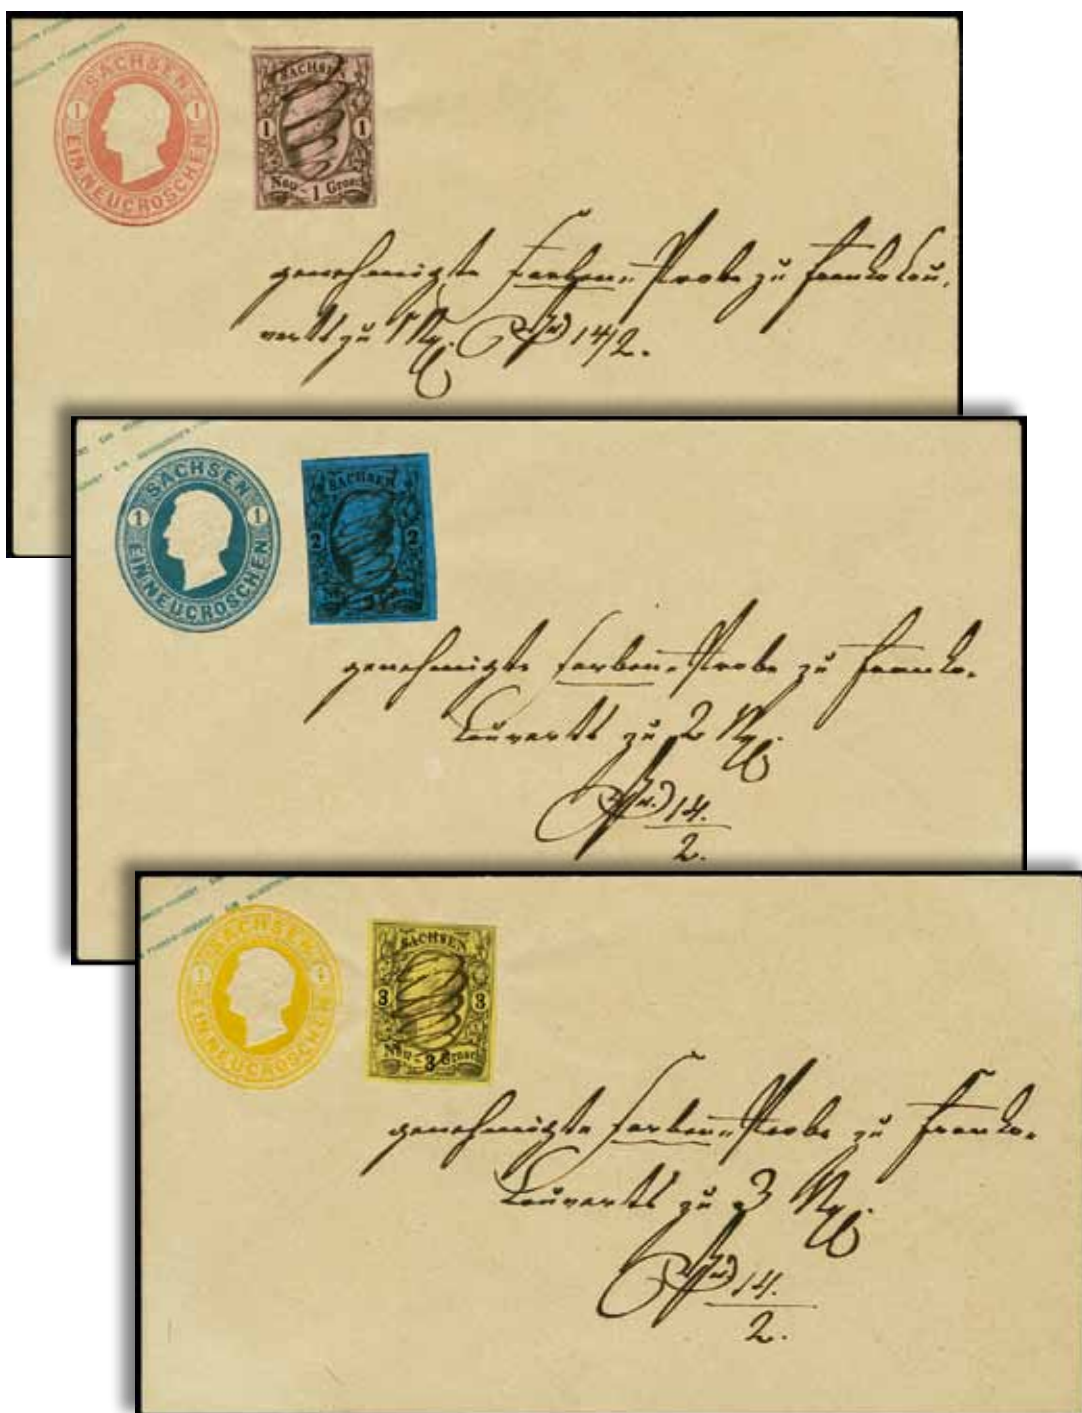 SACHSEN
1 1
EIN NEUGROSCHEN
SACHSEN
1 1
Neu - 1 Grosch
genehmigte Farben-Probe zu Franko Cou-
verts zu 1 Ngr. 14/2.
SACHSEN
1 1
EIN NEUGROSCHEN
SACHSEN
2 2
genehmigte Farben-Probe zu Franko-
Couverts zu 2 Ngr.
14.
2.
SACHSEN
1 1
EIN NEUGROSCHEN
SACHSEN
3 3
Neu - 3 Grosch
genehmigte Farben-Probe zu Franko-
Couverts zu 3 Ngr.
14.
2.